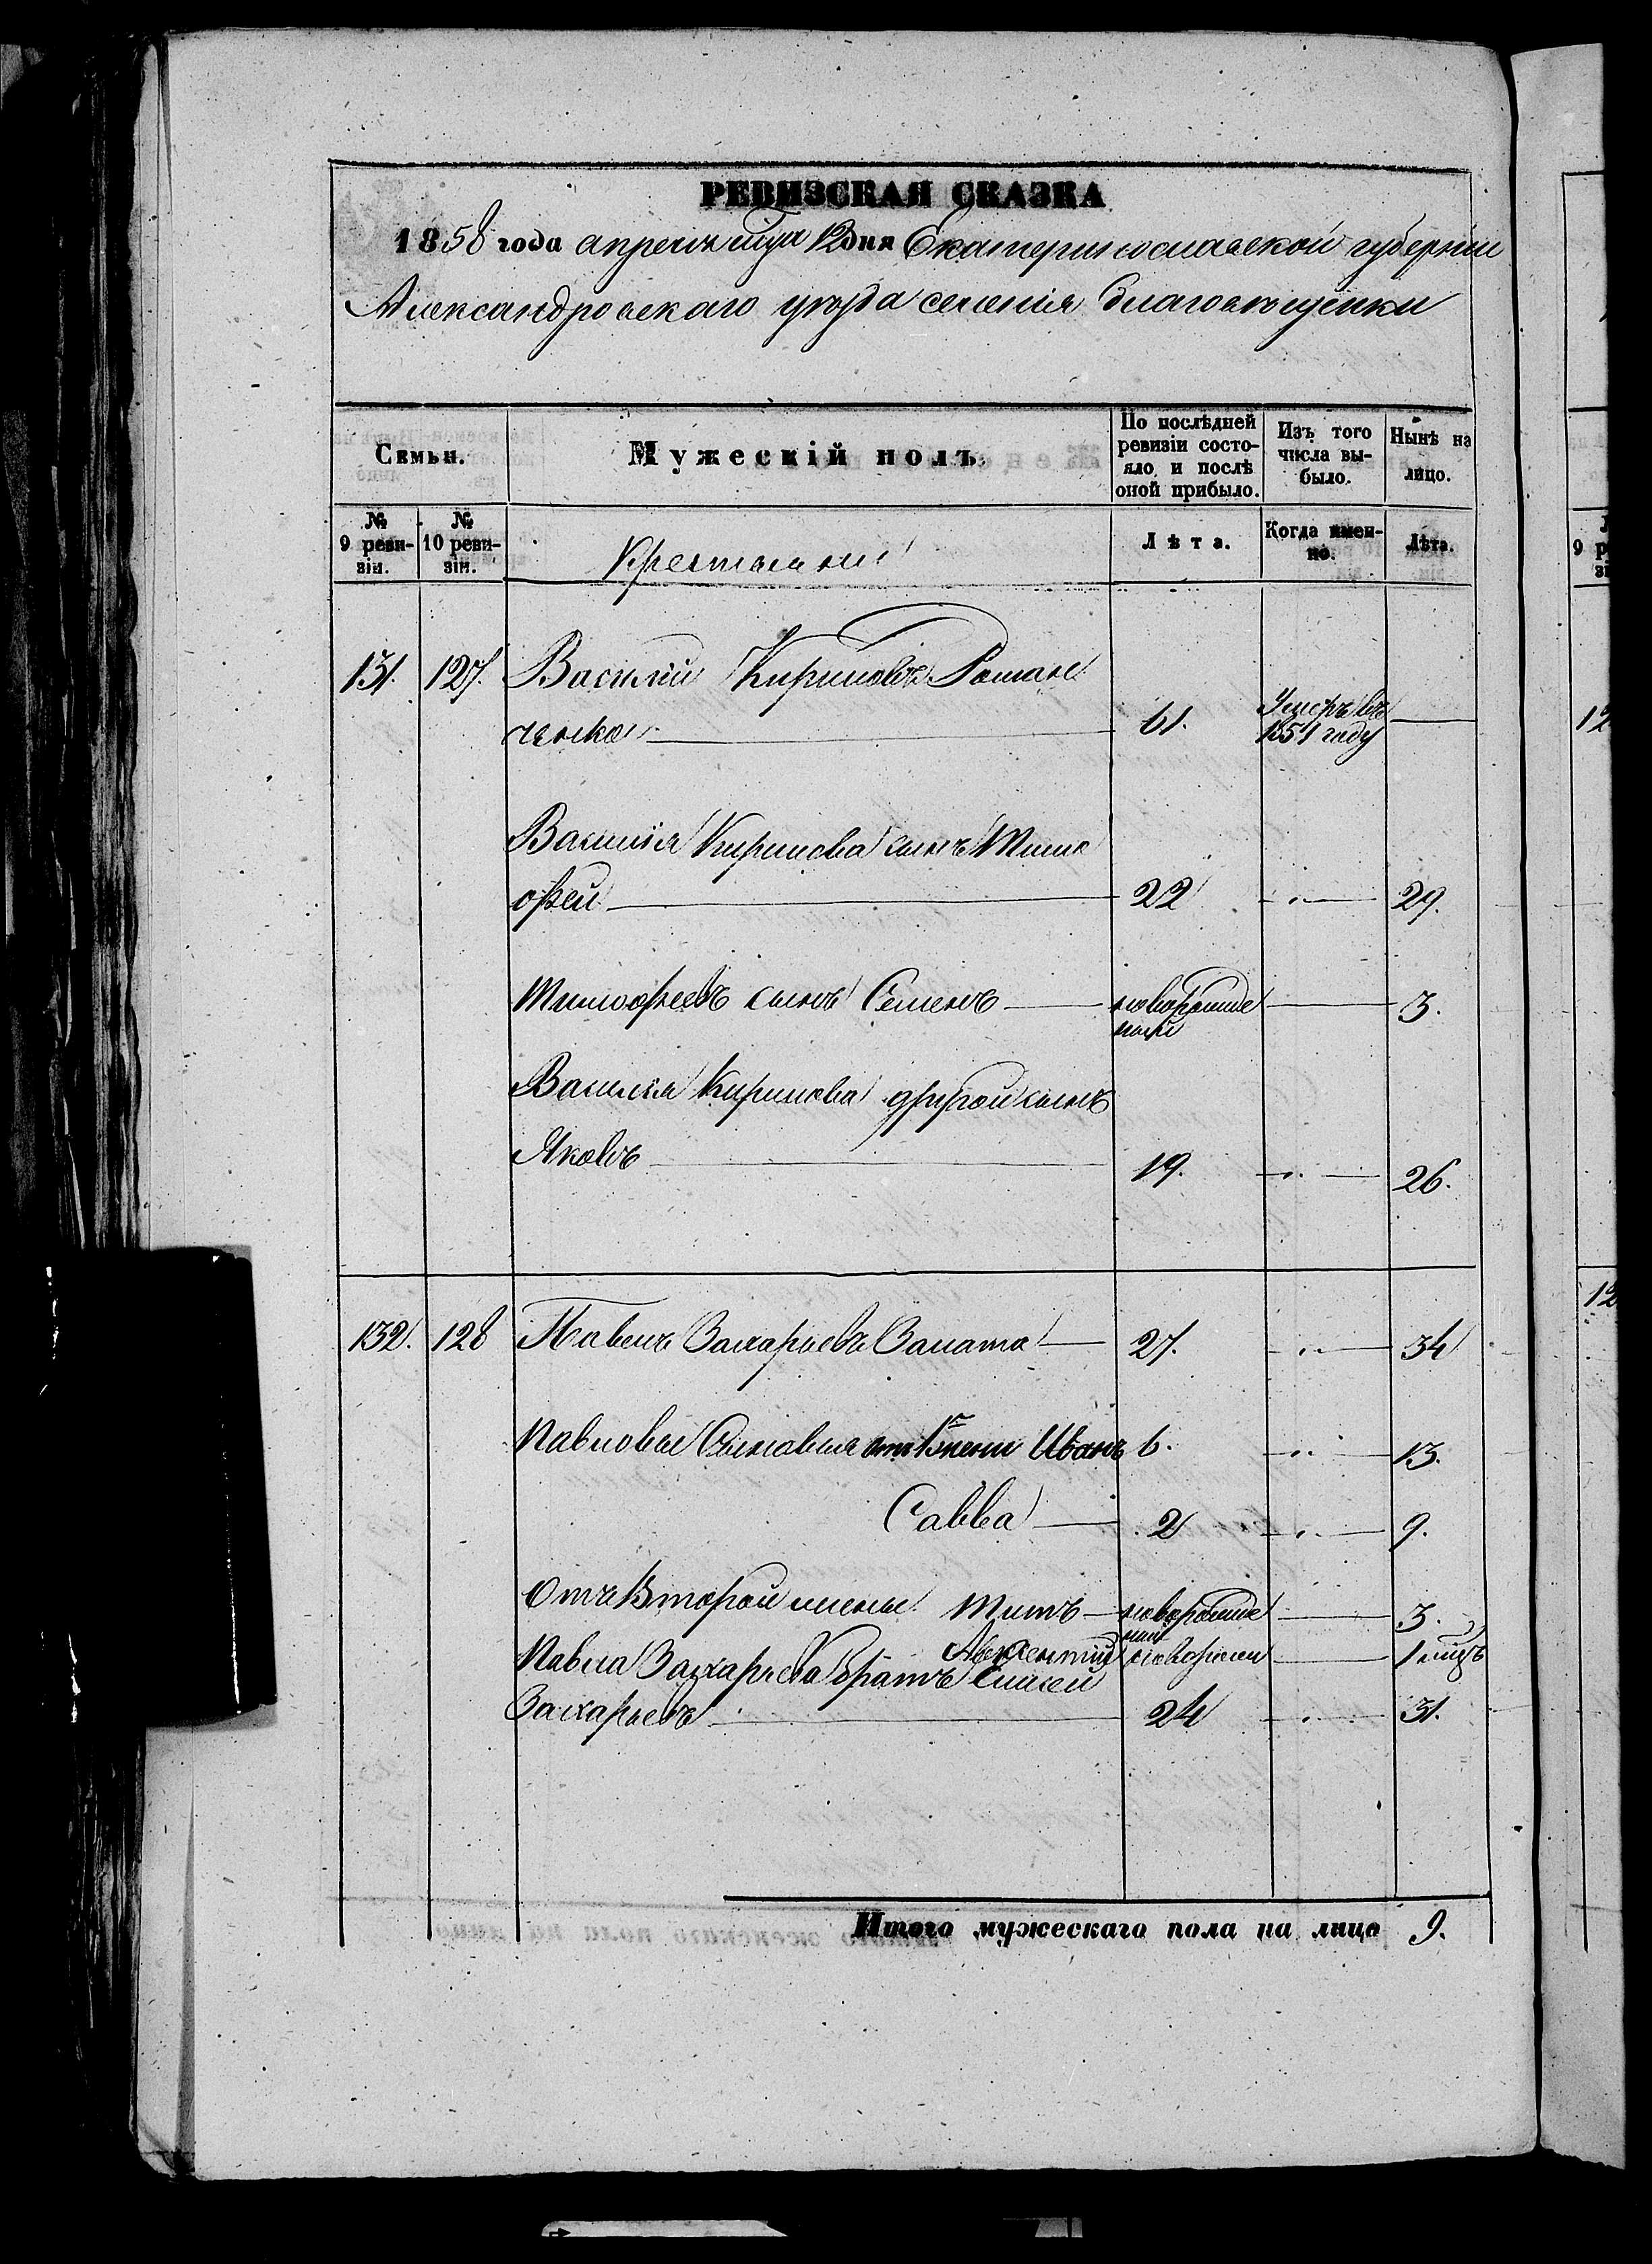 РЕВИЗСКАЯ СКАЗКА
1858 года апреля 12 дня Екатеринославской губерніи
Александровскаго уѣзда селенія Благовѣщенки
Семьи.
Мужескій полъ.
По послѣдней ревизіи состояло и послѣ оной прибыло.
Изъ того числа выбыло.
Нынѣ на лицо.
№ 9 ревизіи.
№ 10 ревизіи.
Крестьяни
Лѣта.
Когда именно.
Лѣта.
131. 127. Василій Кириловъ Роман
ченко 61. Умеръ въ 1851 году
Василія Кирилова сынъ Тимо
фей 22 29.
Тимофеевъ сынъ Семенъ новорожденый 3.
Василія Кирилова другой сынъ
Яковъ 19. 26.
132. 128 Павелъ Захарьевъ Залата 27. 34
Павловы Сыновья от 1й жены Иванъ 6. 13.
Савва 2 9.
Отъ Второй жены Титъ новорожде 3.
Авксентій новорожден 1 мцъ
Павла Захарьева братъ Елисей
Захарьевъ 24 31.
Итого мужескаго пола на лицо 9.
12
12